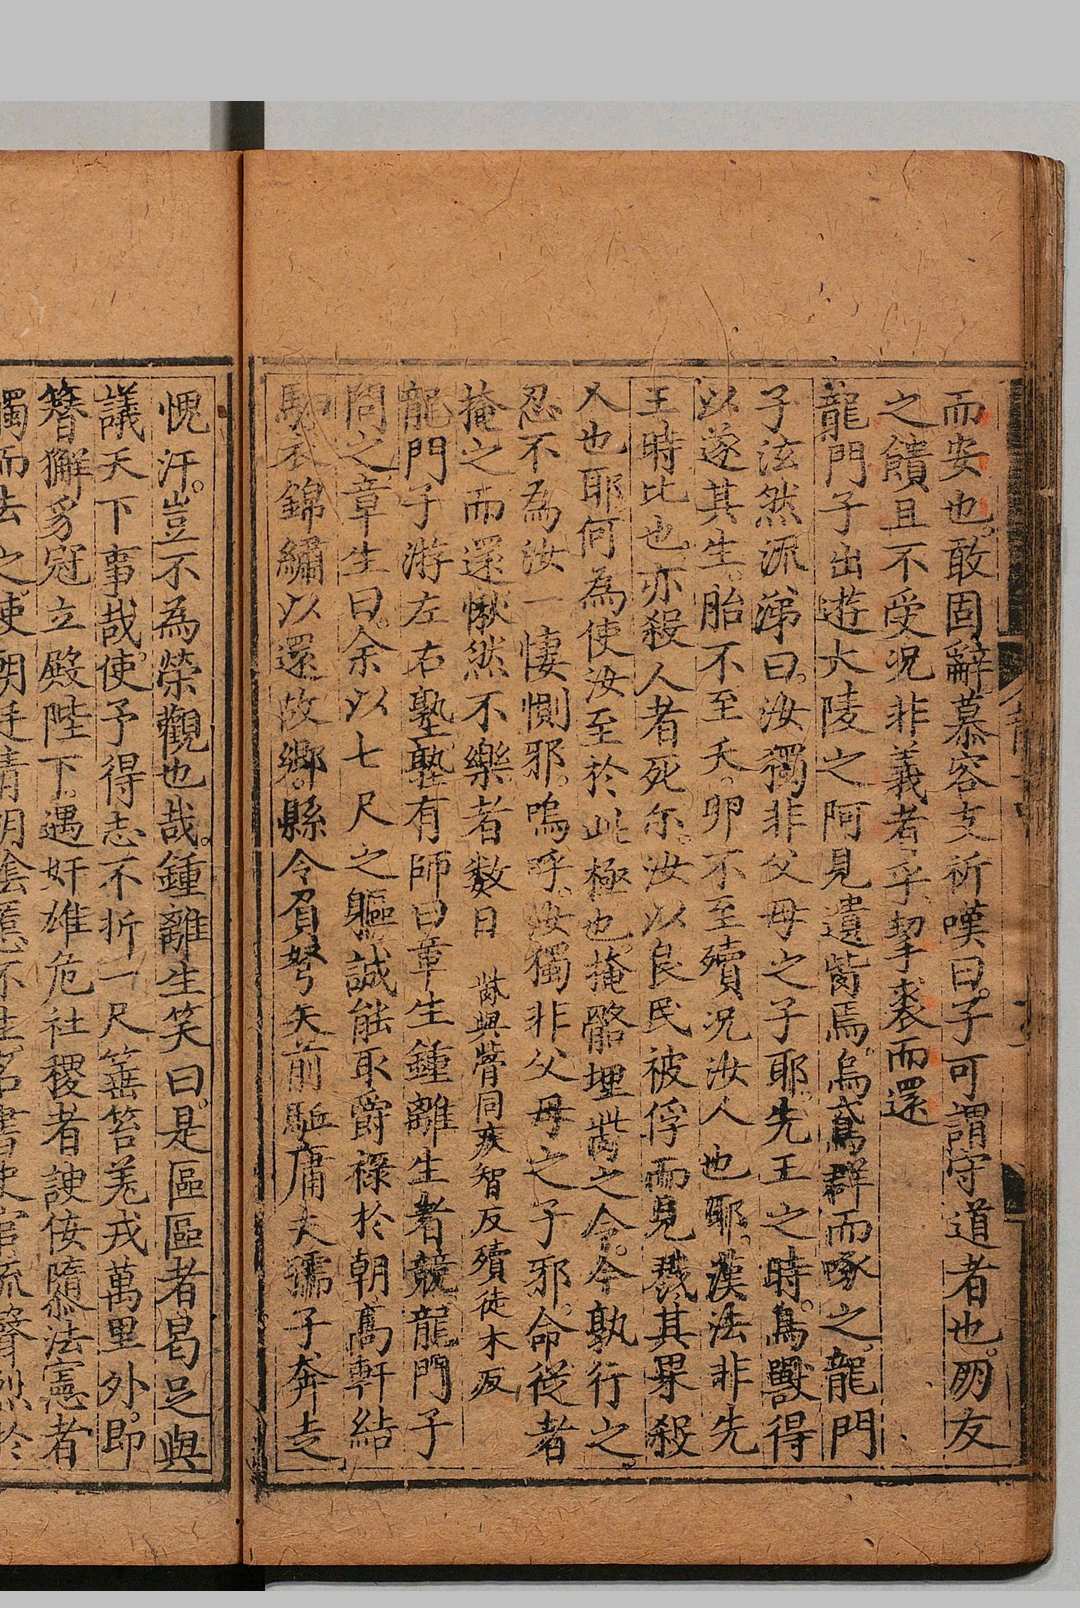 而安也。敢固辭慕容支祈嘆曰。子可謂守道者也。朋友
之饋且不受况非義者乎挈裘而還
龍門子出遊大陵之阿見遺胔焉。烏鳶群而啄之。龍門
子泫然流涕曰。汝獨非父母之子耶。先王之時。鳥獸得
以遂其生。胎不至夭。卵不至殰况汝人也耶。漢法非先
王時比也。亦殺人者死尔。汝以良民被俘而見戮其果殺
人也耶何為使汝至於此極也。掩骼埋胔之令。今孰行之
忍不為汝一悽惻邪。嗚呼。汝獨非父母之子邪。命従者
掩之而還愀然不樂者数日 胔與骴同疾智反殰徒木反
龍門子游左右塾。塾有師曰章生鍾離生者競龍門子
問之章生曰。余以七尺之軀誠能取爵禄於朝高軒結
駟衣錦繡以還故鄉。縣令負弩矢前駈庸夫孺子奔走
愧汗。豈不為榮觀也哉。鍾離生笑曰。是區區者曷足與
議天下事哉。使予得志不折一尺箠笞羌戎萬里外。即
簮獬豸冠立殿陛下。遇奸雄危社稷者諛佞隳法憲者
觸而去之。使朝廷清明陰慝不生名書史官流聲烈於